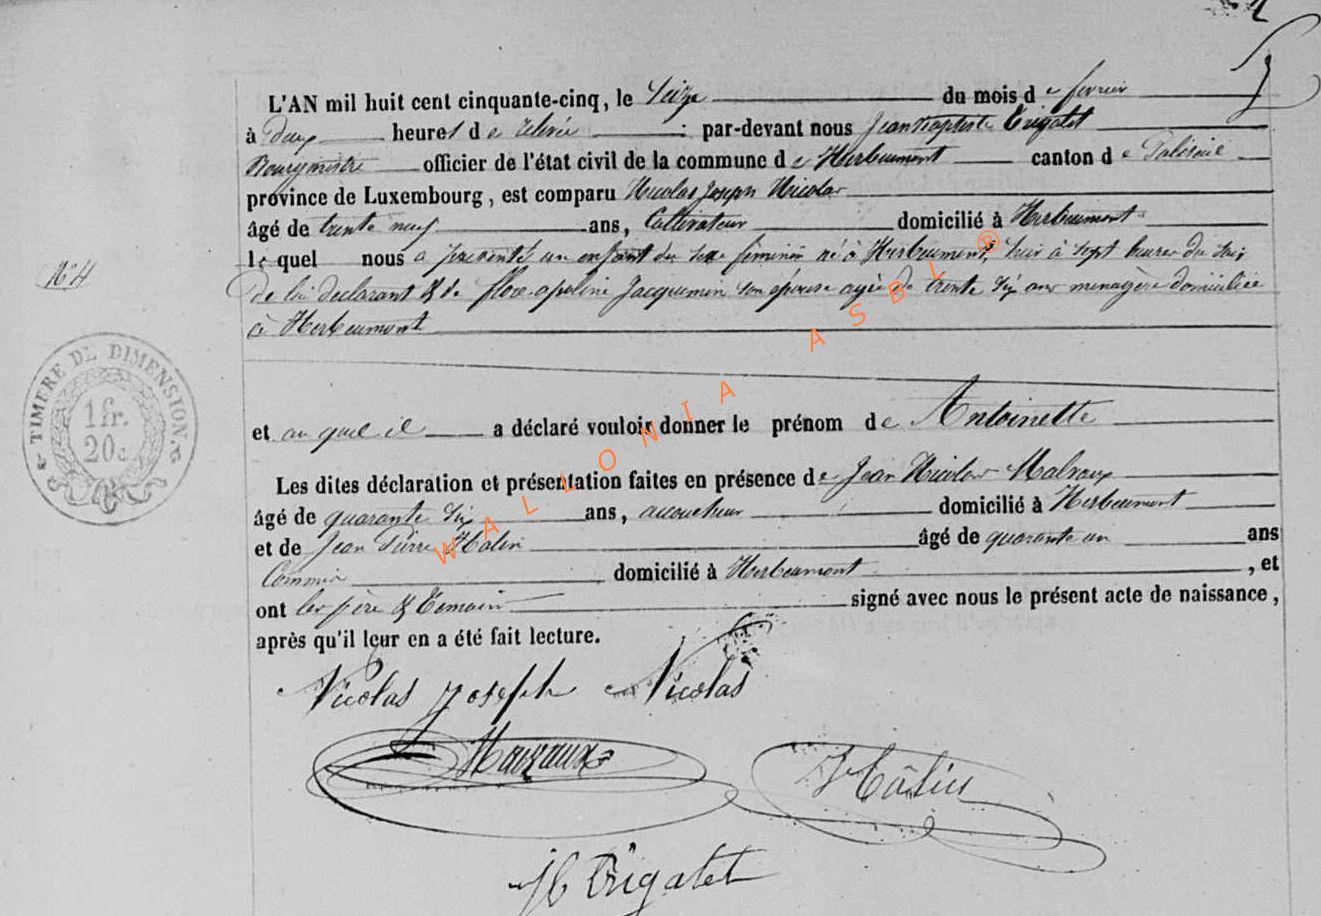 L'AN mil huit cent cinquante-cinq, le Seize du mois de fevrier
à Deux heures de relevée : par-devant nous Jean Baptiste Trigalet
Bourgmestre officier de l'état civil de la commune de Herbeumont canton de Paliseul
province de Luxembourg, est comparu Nicolas Joseph Nicolas
âgé de trente neuf ans, Cultivateur domicilié à Herbeumont
lequel nous a presenté un enfant du sexe féminin né à Herbeumont, hier à sept heures du soir
N° 4
de lui declarant & de flore apoline Jacquemin son épouse agée de trente six ans menagère domiciliée
à Herbeumont
et au quel il a déclaré vouloir donner le prénom de Antoinette
Les dites déclaration et présentation faites en présence de Jean Nicolas Malvaux
âgé de quarante six ans, accoucheur domicilié à Herbeumont
et de Jean Pierre Hâlin âgé de quarante un ans
Commis domicilié à Herbeumont, et
ont les père & temoins signé avec nous le présent acte de naissance,
après qu'il leur en a été fait lecture.
Nicolas Joseph Nicolas
Malvaux Hâlin
Trigalet
TIMBRE DE DIMENSION.
1 fr.
20 c.
WALLONIA ASBL ®